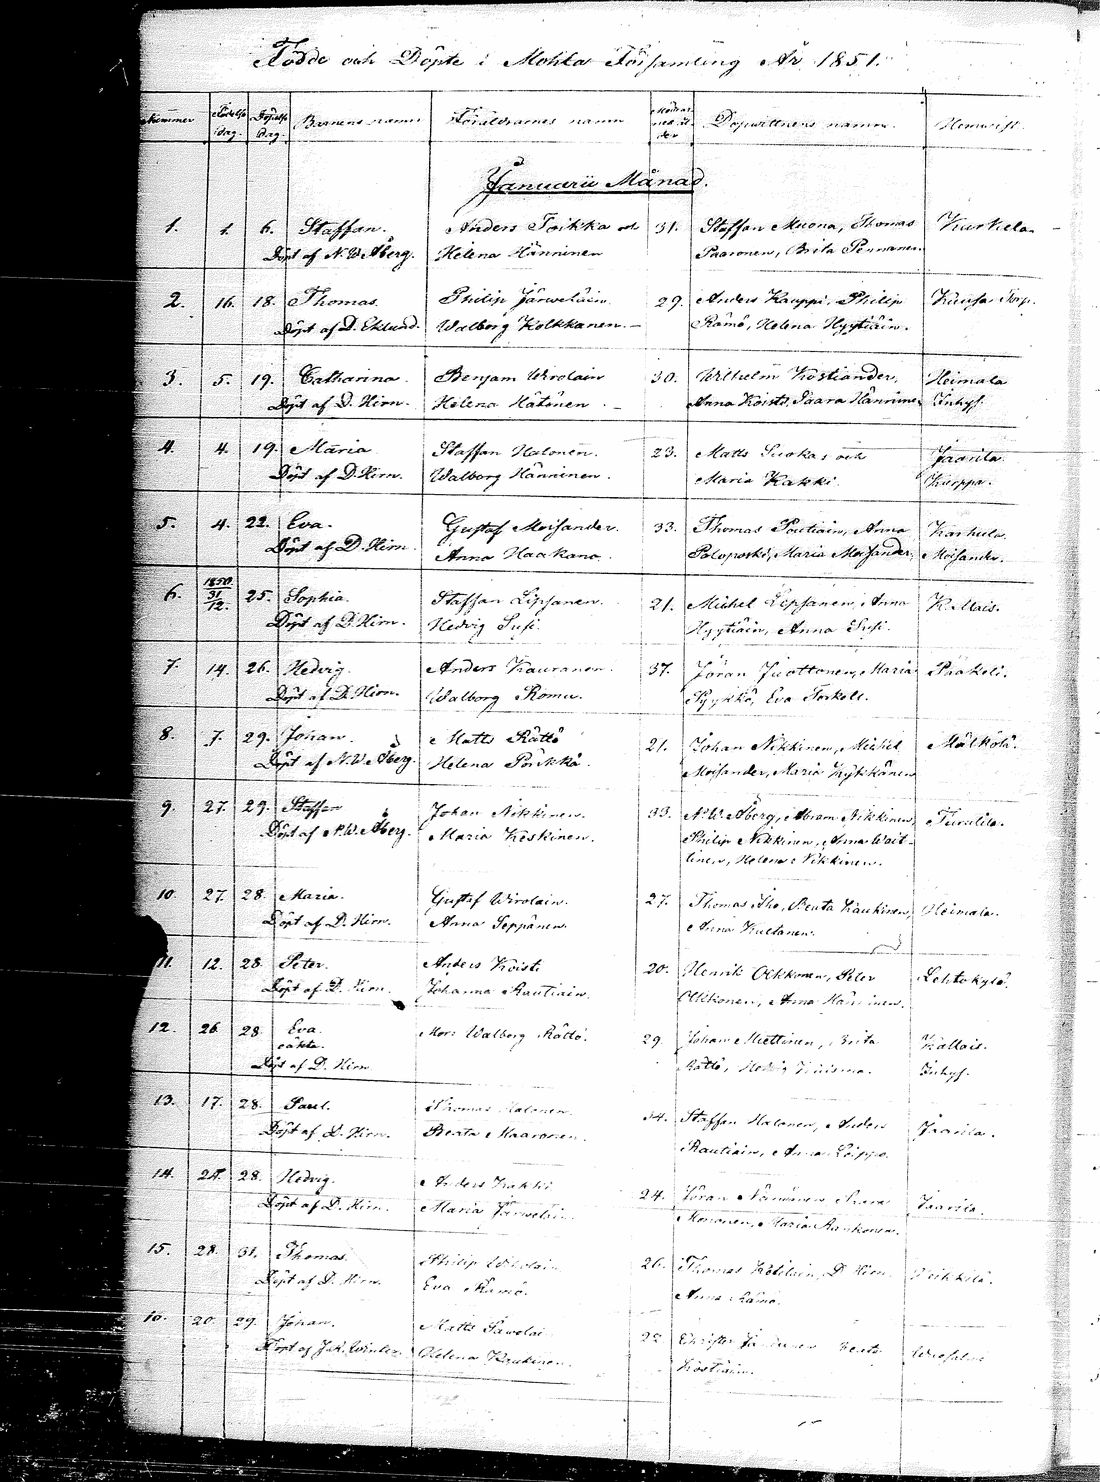 Födde och Döpte i Mohla Församling År 1851.
Nummer Födelse dag. Döpelse dag. Barnens namn Föräldrarnes namn Modrens ålder Dopvittnens namn. Hemvist.
Januarii Månad.
1. 1. 6. Staffan. Anders Toikka och 31. Staffan Muona, Thomas Kurkela
Döpt af N. W. Åberg. Helena Hänninen Paavonen, Brita Pennanen
2. 16. 18. Thomas. Philip Järveläin 29. Anders Kauppi, Philip Kuusa Torp.
Döpt af D. Eklund. Walborg Kolkkanen. Rämö, Helena Hyytiäin.
3. 5. 19. Catharina. Benjam Wirolain 30. Wilhelm Köstiander, Heimala
Döpt af D. Hirn. Helena Hätönen Anna Koisti, Saara Hänninen Inhys.
4. 4. 19. Maria Staffan Halonen. 23. Matts Suokas och Jaarila
Döpt af D. Hirn. Walborg Hänninen. Maria Kakki. Kurppa.
5. 4. 22. Eva. Gustaf Moisander. 33. Thomas Poutiain, Anna Karhula
Döpt af D. Hirn Anna Haakana Poloposki, Maria Moisander, Moisander.
6. 1850 31/12. 25. Sophia. Staffan Lipsanen. 21. Michel Lipsanen, Anna K. Mais.
Döpt af D. Hirn. Hedvig Susi. Hyytiäin, Anna Susi.
7. 14. 26. Hedvig. Anders Kauranen. 37. Jöran Juottonen, Maria Pääkeli.
Döpt af D. Hirn. Walborg Romu. Kyykkö, Eva Torkell.
8. 7. 29. Johan. Matts Rättö 21. Johan Nikkinen, Michel Mälkölä.
Döpt af N. W. Åberg. Helena Pöikkö. Moisander, Maria Kytkkänen
9. 27. 29. Staffan Johan Nikkinen. 33. N. W. Åberg, Abram Nikkinen, Turulila.
Döpt af N. W. Åberg. Maria Keskinen. Philip Nikkinen, Anna Wait-
tinen, Helena Nikkinen.
10. 27. 28. Maria. Gustaf Wirolain. 27. Thomas Aho, Beata Kaukinen, Heimala.
Döpt af D. Hirn. Anna Seppänen. Anna Kultanen.
11. 12. 28. Peter. Anders Koisti 20. Henrik Olkkonen, Peter Lehtokylä.
Döpt af D. Hirn. Johanna Rautiain. Olkkonen, Anna Hänninen.
12. 26. 28. Eva. Mor: Walborg Rättö. 29. Johan Miettinen, Brita Kallais.
oäkta. Rättö, Hedvig Kuisma. Inhys.
Döpt af D. Hirn
13. 17. 28. Paul. Thomas Halonen. 34. Staffan Halonen, Anders Jaarila.
Döpt af D. Hirn. Beata Maaronen. Rautiain, Anna Loippo.
14. 24. 28. Hedvig. Anders Kakki 24. Jöran Jaarila.
Döpt af D. Hirn. Maria Järveläin. Mononen, Maria Ruokonen.
15. 28. 31. Thomas. Philip Wirolain 26. Thomas Kötiläin, D. Hirn Heikkilä.
Döpt af D. Hirn. Eva Rämö. Anna Rämö.
16. 20. 29. Johan. Matts Pavolai 22. Christer
Döpt af Joh. Winter. Helena Kaukinen. Köstiain.